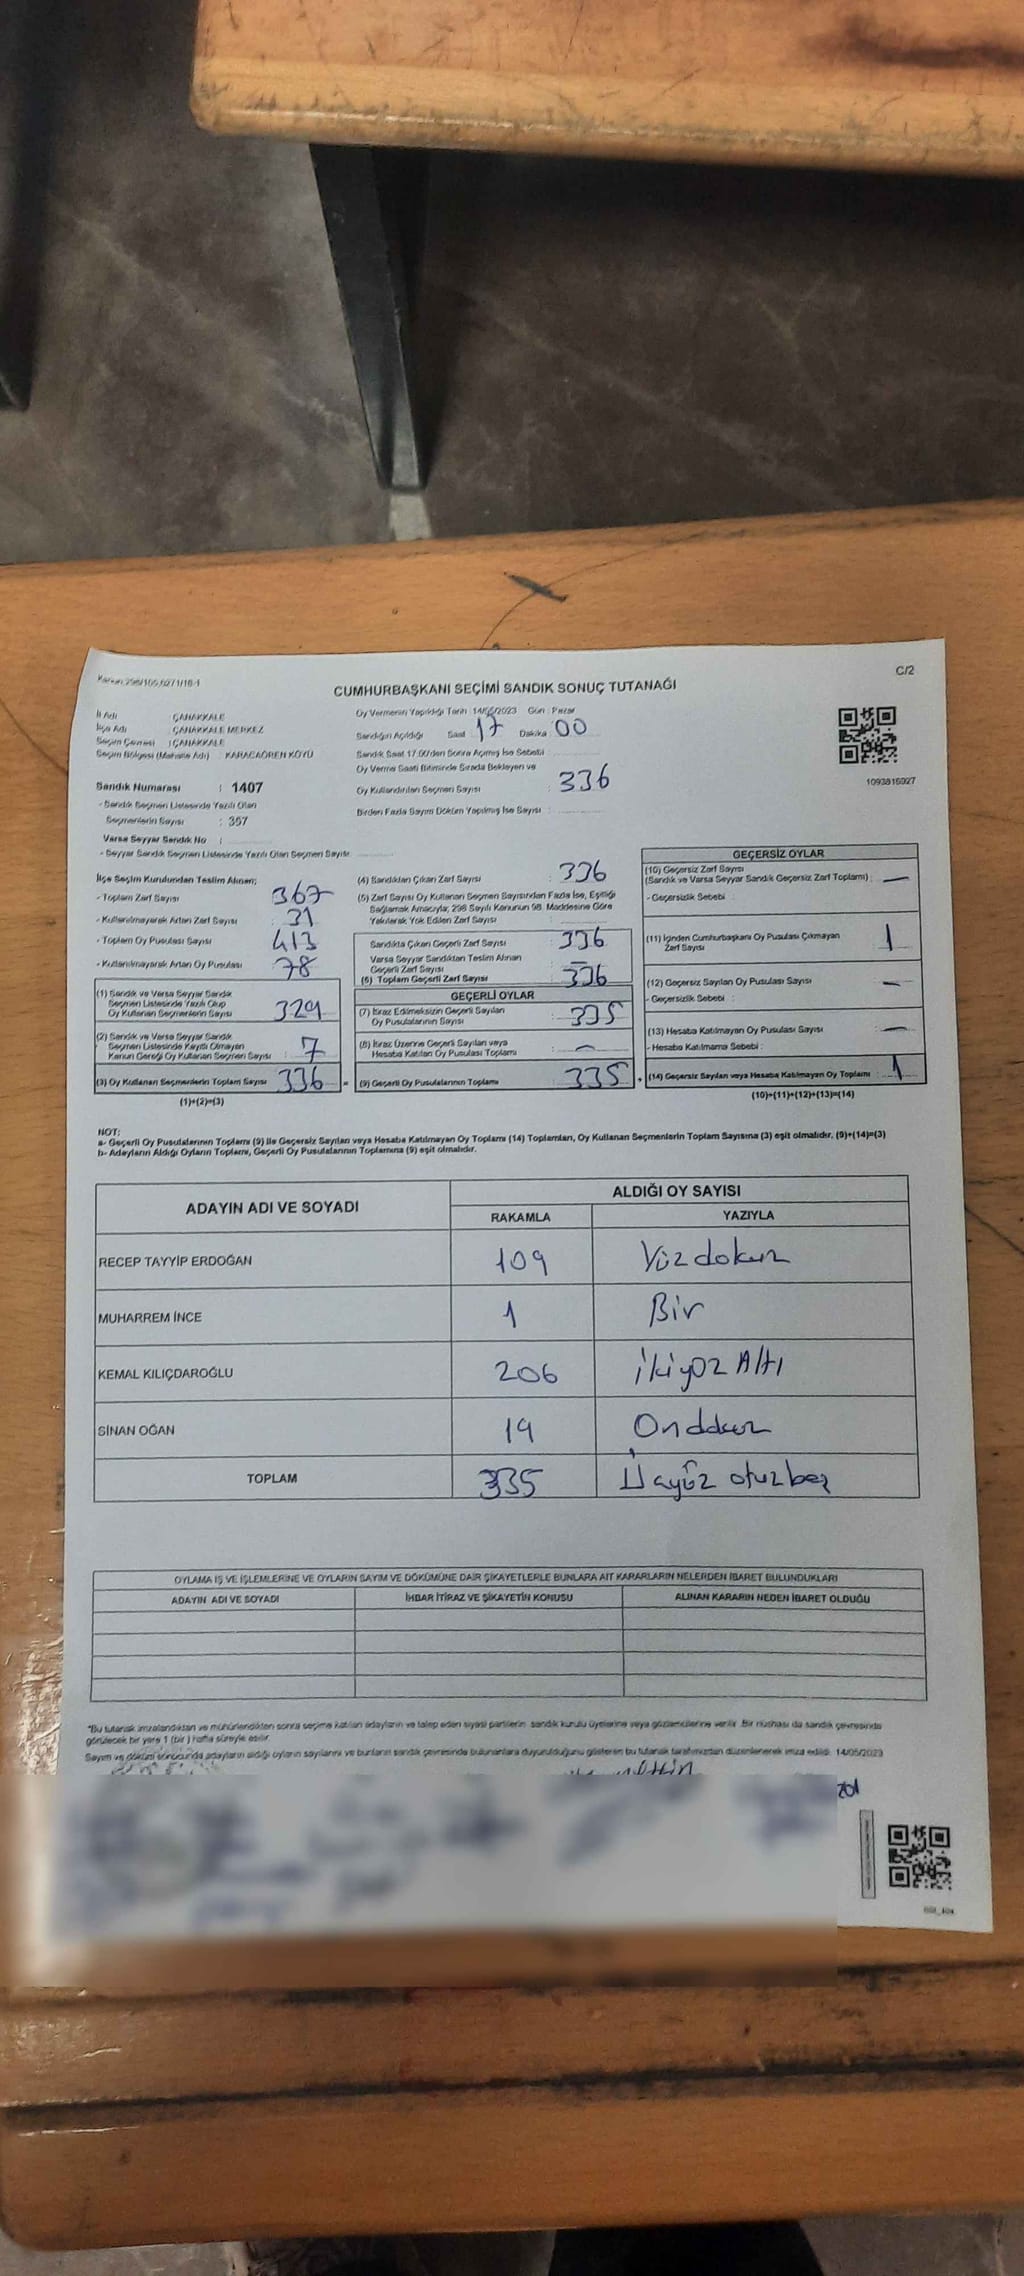 Kanun:298/105,6271/18-1
C/2
CUMHURBAŞKANI SEÇİMİ SANDIK SONUÇ TUTANAĞI
İl Adı : ÇANAKKALE
İlçe Adı : ÇANAKKALE MERKEZ
Seçim Çevresi : ÇANAKKALE
Seçim Bölgesi (Mahalle Adı) : KARACAÖREN KÖYÜ
Sandık Numarası : 1407
- Sandık Seçmen Listesinde Yazılı Olan
Seçmenlerin Sayısı : 357
Varsa Seyyar Sandık No :
- Seyyar Sandık Seçmen Listesinde Yazılı Olan Seçmen Sayısı:
Oy Vermenin Yapıldığı Tarih : 14/05/2023 Gün : Pazar
Sandığın Açıldığı Saat : 17 Dakika : 00
Sandık Saat 17:00'den Sonra Açılmış İse Sebebi :
Oy Verme Saati Bitiminde Sırada Bekleyen ve
Oy Kullandırılan Seçmen Sayısı : 336
Birden Fazla Sayım Döküm Yapılmış İse Sayısı :
1093815927
İlçe Seçim Kurulundan Teslim Alınan;
- Toplam Zarf Sayısı : 367
- Kullanılmayarak Artan Zarf Sayısı : 31
- Toplam Oy Pusulası Sayısı : 413
- Kullanılmayarak Artan Oy Pusulası : 78
(1) Sandık ve Varsa Seyyar Sandık
Seçmen Listesinde Yazılı Olup
Oy Kullanan Seçmenlerin Sayısı : 329
(2) Sandık ve Varsa Seyyar Sandık
Seçmen Listesinde Kayıtlı Olmayan
Kanun Gereği Oy Kullanan Seçmen Sayısı : 7
(3) Oy Kullanan Seçmenlerin Toplam Sayısı : 336 =
(1)+(2)=(3)
(4) Sandıktan Çıkan Zarf Sayısı : 336
(5) Zarf Sayısı Oy Kullanan Seçmen Sayısından Fazla İse, Eşitliği
Sağlamak Amacıyla; 298 Sayılı Kanunun 98. Maddesine Göre
Yakılarak Yok Edilen Zarf Sayısı :
Sandıkta Çıkan Geçerli Zarf Sayısı : 336
Varsa Seyyar Sandıktan Teslim Alınan
Geçerli Zarf Sayısı : —
(6) Toplam Geçerli Zarf Sayısı : 336
GEÇERLİ OYLAR
(7) İtiraz Edilmeksizin Geçerli Sayılan
Oy Pusulalarının Sayısı : 335
(8) İtiraz Üzerine Geçerli Sayılan veya
Hesaba Katılan Oy Pusulası Toplamı : —
(9) Geçerli Oy Pusulalarının Toplamı : 335 +
GEÇERSİZ OYLAR
(10) Geçersiz Zarf Sayısı
(Sandık ve Varsa Seyyar Sandık Geçersiz Zarf Toplamı) : —
- Geçersizlik Sebebi :
(11) İçinden Cumhurbaşkanı Oy Pusulası Çıkmayan
Zarf Sayısı : 1
(12) Geçersiz Sayılan Oy Pusulası Sayısı : —
- Geçersizlik Sebebi :
(13) Hesaba Katılmayan Oy Pusulası Sayısı : —
- Hesaba Katılmama Sebebi :
(14) Geçersiz Sayılan veya Hesaba Katılmayan Oy Toplamı : 1
(10)+(11)+(12)+(13)=(14)
NOT:
a- Geçerli Oy Pusulalarının Toplamı (9) ile Geçersiz Sayılan veya Hesaba Katılmayan Oy Toplamı (14) Toplamları, Oy Kullanan Seçmenlerin Toplam Sayısına (3) eşit olmalıdır. (9)+(14)=(3)
b- Adayların Aldığı Oyların Toplamı, Geçerli Oy Pusulalarının Toplamına (9) eşit olmalıdır.
ADAYIN ADI VE SOYADI ALDIĞI OY SAYISI
RAKAMLA YAZIYLA
RECEP TAYYİP ERDOĞAN 109 Yüzdokuz
MUHARREM İNCE 1 Bir
KEMAL KILIÇDAROĞLU 206 ikiyüz Altı
SİNAN OĞAN 19 Ondokuz
TOPLAM 335 Üçyüz otuzbeş
OYLAMA İŞ VE İŞLEMLERİNE VE OYLARIN SAYIM VE DÖKÜMÜNE DAİR ŞİKAYETLERLE BUNLARA AİT KARARLARIN NELERDEN İBARET BULUNDUKLARI
ADAYIN ADI VE SOYADI İHBAR İTİRAZ VE ŞİKAYETİN KONUSU ALINAN KARARIN NEDEN İBARET OLDUĞU
*Bu tutanak imzalandıktan ve mühürlendikten sonra seçime katılan adayların ve talep eden siyasi partilerin sandık kurulu üyelerine veya gözlemcilerine verilir. Bir nüshası da sandık çevresinde
görülecek bir yere 1 (bir) hafta süreyle asılır.
Sayım ve döküm sonucunda adayların aldığı oyların sayılarını ve bunların sandık çevresinde bulunanlara duyurulduğunu gösteren bu tutanak tarafımızdan düzenlenerek imza edildi. 14/05/2023